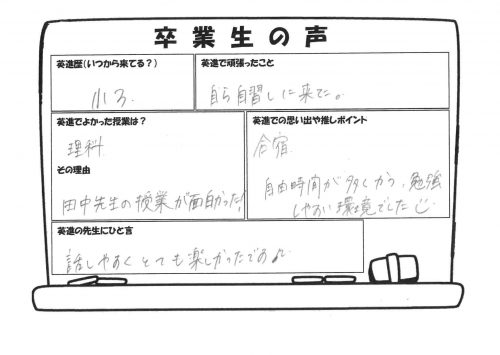 卒業生の声
英進歴(いつから来てる?)
小3.
英進で頑張ったこと
自ら自習しに来た。
英進でよかった授業は?
理科
その理由
田中先生の授業が面白かった!
英進での思い出や推しポイント
合宿
自由時間が多くかつ、勉強
しやすい環境でした
英進の先生にひと言
話しやすくとても楽しかったです♪